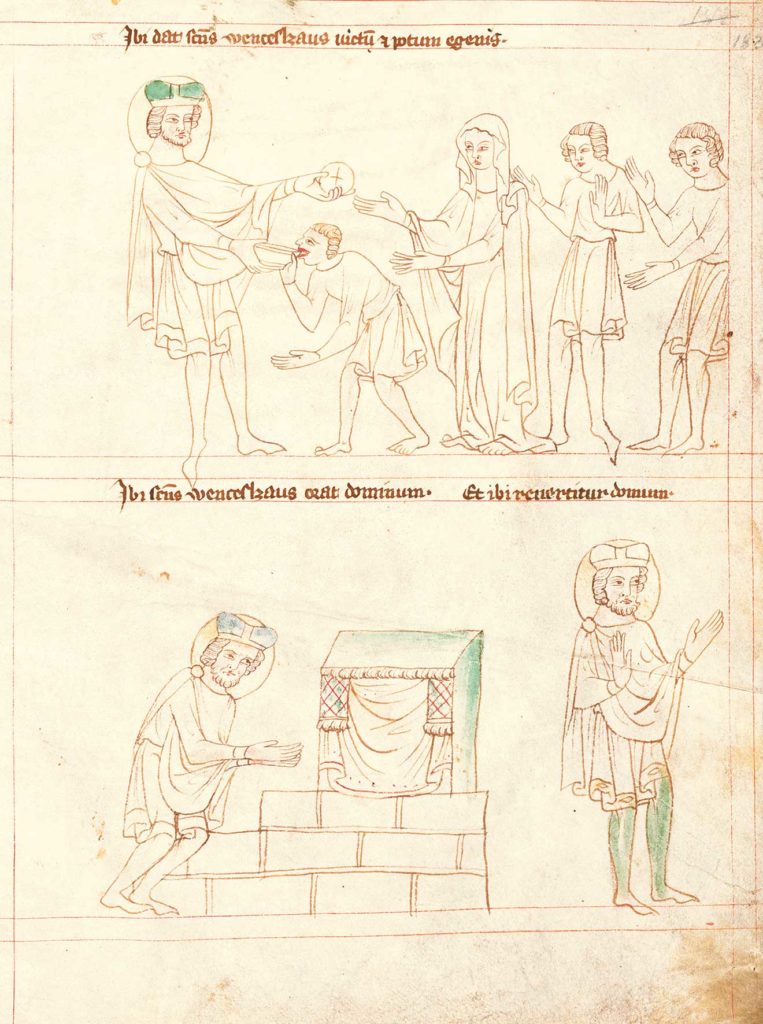 Ibi dat sc̄us wenceslaus uictū ⁊ potum egenis.
Ibi sc̄us wenceslaus orat dominum. Et ibi reuertitur domum.